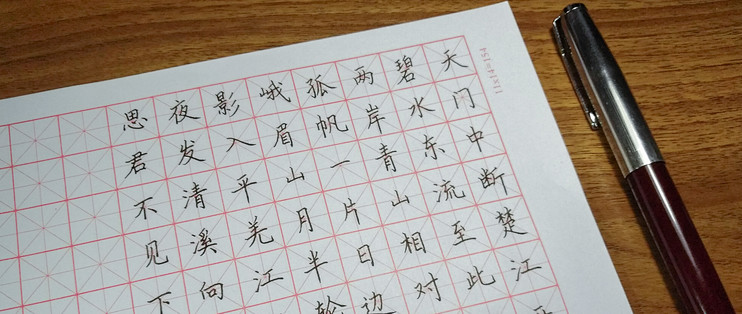 天门中断楚江
碧水东流至此
两岸青山相对
孤帆一片日边
峨眉山月半轮
影入平羌江
夜发清溪向
思君不见下